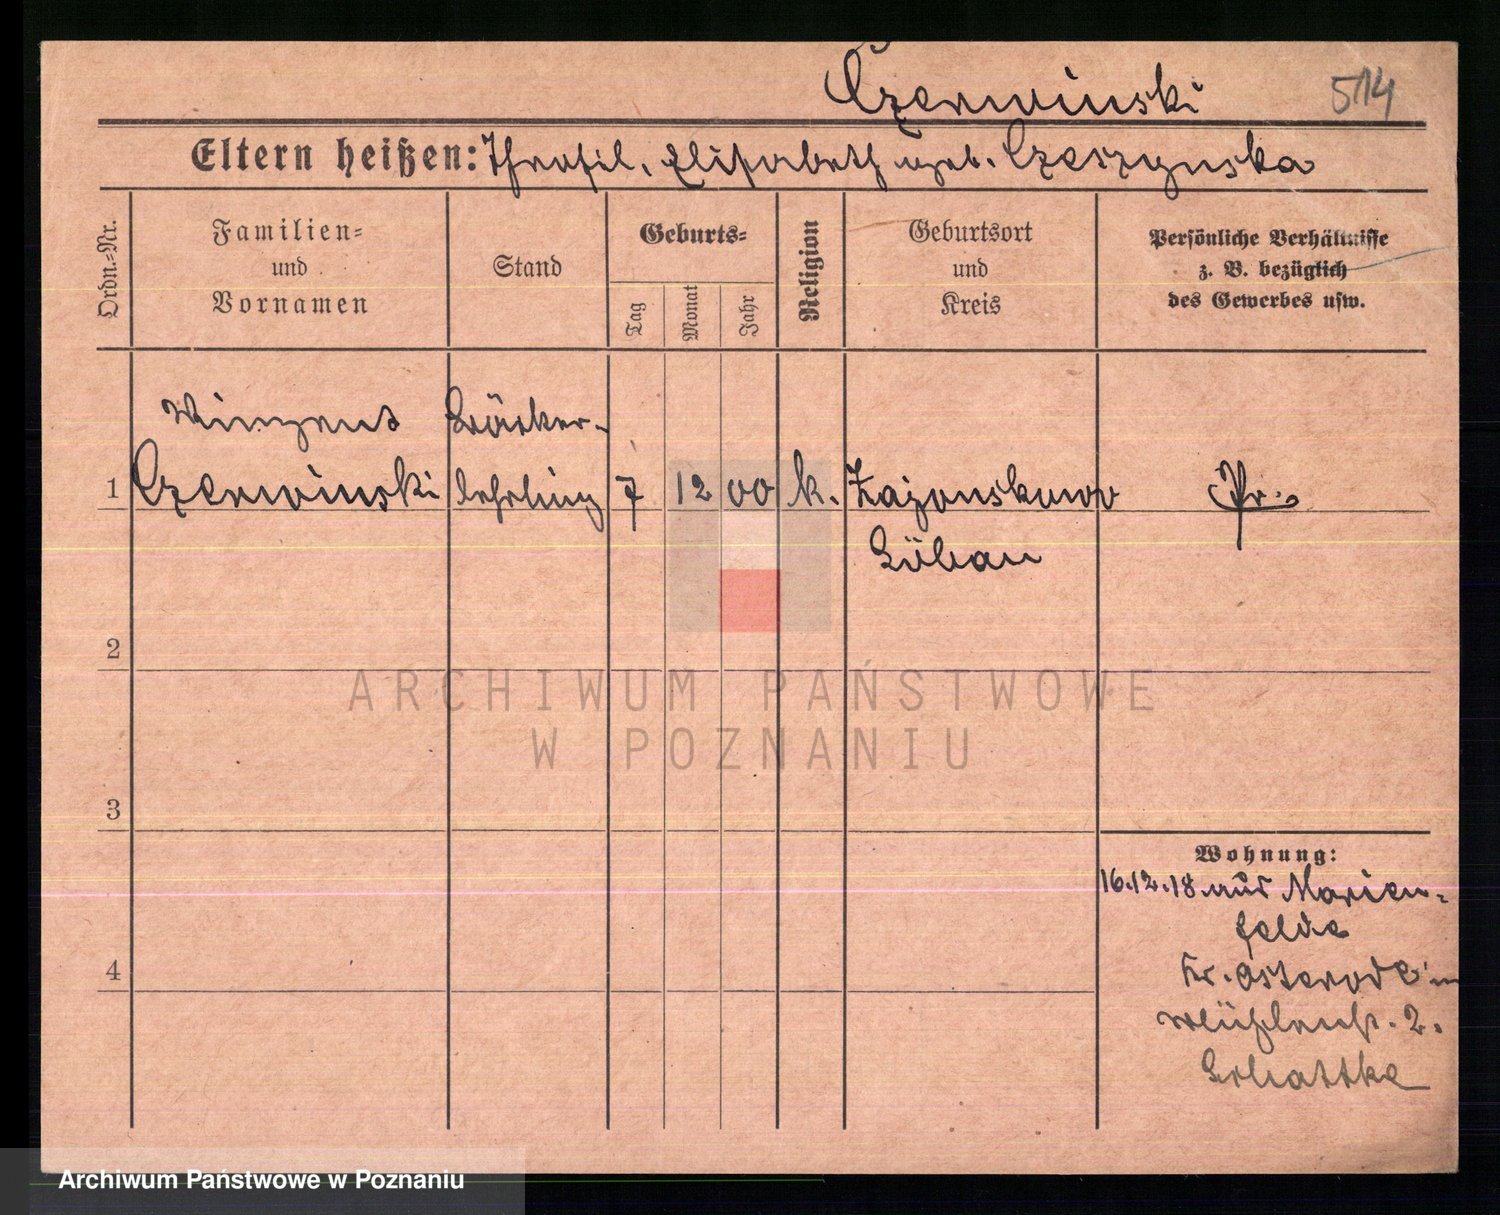 Czerwinski 514
Eltern heißen: Theofil, Elisabeth geb. Czeszynska
Ordn.-Nr.
Familien-
und
Vornamen
Stand
Geburts-
Tag
Monat
Jahr
Religion
Geburtsort
und
Kreis
Persönliche Verhältnisse
z. B. bezüglich
des Gewerbes usw.
Winzent Bäcker-
1 Czerwinski lehrling 7 12 00 k. Zajonskowo Pr.
Löbau
2
ARCHIWUM PAŃSTWOWE
W POZNANIU
3
Wohnung:
16.12.18 aus Marien-
felde
4
Kr. Osterode
Mühlenst. 2.
Archiwum Państwowe w Poznaniu